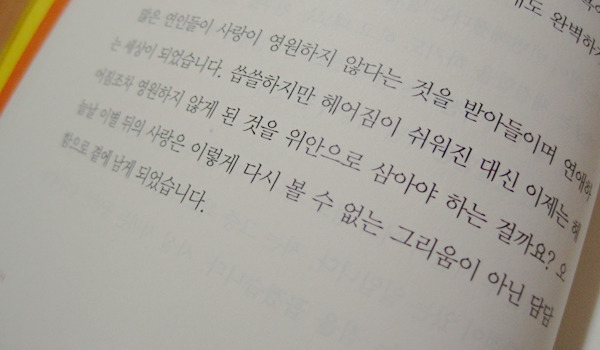 도 완벽하
많은 연인들이 사랑이 영원하지 않다는 것을 받아들이며 연애하
는 세상이 되었습니다. 씁쓸하지만 헤어짐이 쉬워진 대신 이제는 헤
어짐조차 영원하지 않게 된 것을 위안으로 삼아야 하는 걸까요? 오
늘날 이별 뒤의 사랑은 이렇게 다시 볼 수 없는 그리움이 아닌 담담
함으로 곁에 남게 되었습니다.